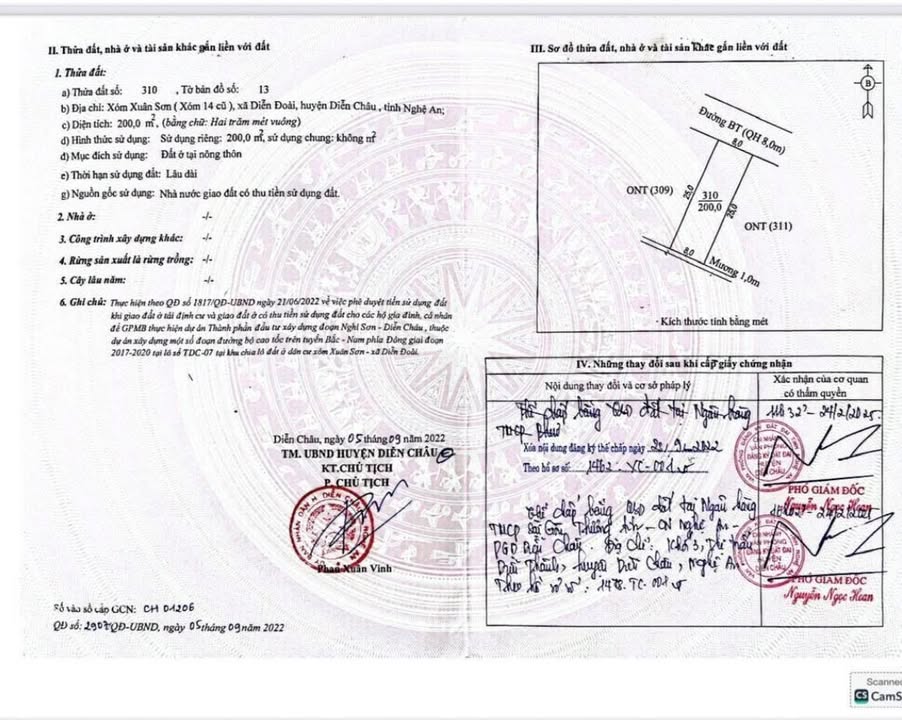 II. Thửa đất, nhà ở và tài sản khác gắn liền với đất
1. Thửa đất:
a) Thửa đất số: 310 , Tờ bản đồ số: 13
b) Địa chỉ: Xóm Xuân Sơn ( Xóm 14 cũ ), xã Diễn Đoài, huyện Diễn Châu , tỉnh Nghệ An;
c) Diện tích: 200,0 m², (bằng chữ: Hai trăm mét vuông)
d) Hình thức sử dụng: Sử dụng riêng: 200,0 m², sử dụng chung: không m²
đ) Mục đích sử dụng: Đất ở tại nông thôn
e) Thời hạn sử dụng đất: Lâu dài
g) Nguồn gốc sử dụng: Nhà nước giao đất có thu tiền sử dụng đất.
2. Nhà ở: -/-
3. Công trình xây dựng khác: -/-
4. Rừng sản xuất là rừng trồng: -/-
5. Cây lâu năm: -/-
6. Ghi chú: Thực hiện theo QĐ số 1817/QĐ-UBND ngày 21/06/2022 về việc phê duyệt tiền sử dụng đất
khi giao đất ở tái định cư và giao đất ở có thu tiền sử dụng đất cho các hộ gia đình, cá nhân
để GPMB thực hiện dự án Thành phần đầu tư xây dựng đoạn Nghi Sơn - Diễn Châu , thuộc
dự án xây dựng một số đoạn đường bộ cao tốc trên tuyến Bắc - Nam phía Đông giai đoạn
2017-2020 tại lô số TDC-07 tại khu chia lô đất ở dân cư xóm Xuân Sơn - xã Diễn Đoài.
Diễn Châu, ngày 05 tháng 09 năm 2022
TM. UBND HUYỆN DIỄN CHÂU
KT.CHỦ TỊCH
P. CHỦ TỊCH
Phan Xuân Vinh
Số vào sổ cấp GCN: CH 01206
QĐ số: 2907/QĐ-UBND, ngày 05 tháng 09 năm 2022
III. Sơ đồ thửa đất, nhà ở và tài sản khác gắn liền với đất
B
Đường BT (QH 8,0m)
8,0
ONT (309)
25,0
310
200,0
25,0
ONT (311)
8,0
Mương 1,0m
- Kích thước tính bằng mét
IV. Những thay đổi sau khi cấp giấy chứng nhận
Nội dung thay đổi và cơ sở pháp lý
Xác nhận của cơ quan
có thẩm quyền
Thế chấp bằng QSD đất tại Ngân hàng
TMCP
Xóa nội dung đăng ký thế chấp ngày
Theo hồ sơ số:
PHÓ GIÁM ĐỐC
Nguyễn Ngọc Hoan
Thế chấp bằng QSD đất tại Ngân hàng
TMCP Sài Gòn Thương Tín - CN Nghệ An -
PGD Diễn Châu. Địa chỉ: Khối 3, Thị trấn
Diễn Thành, huyện Diễn Châu, Nghệ An
Theo hồ sơ số:
PHÓ GIÁM ĐỐC
Nguyễn Ngọc Hoan
Scanned
CS CamS